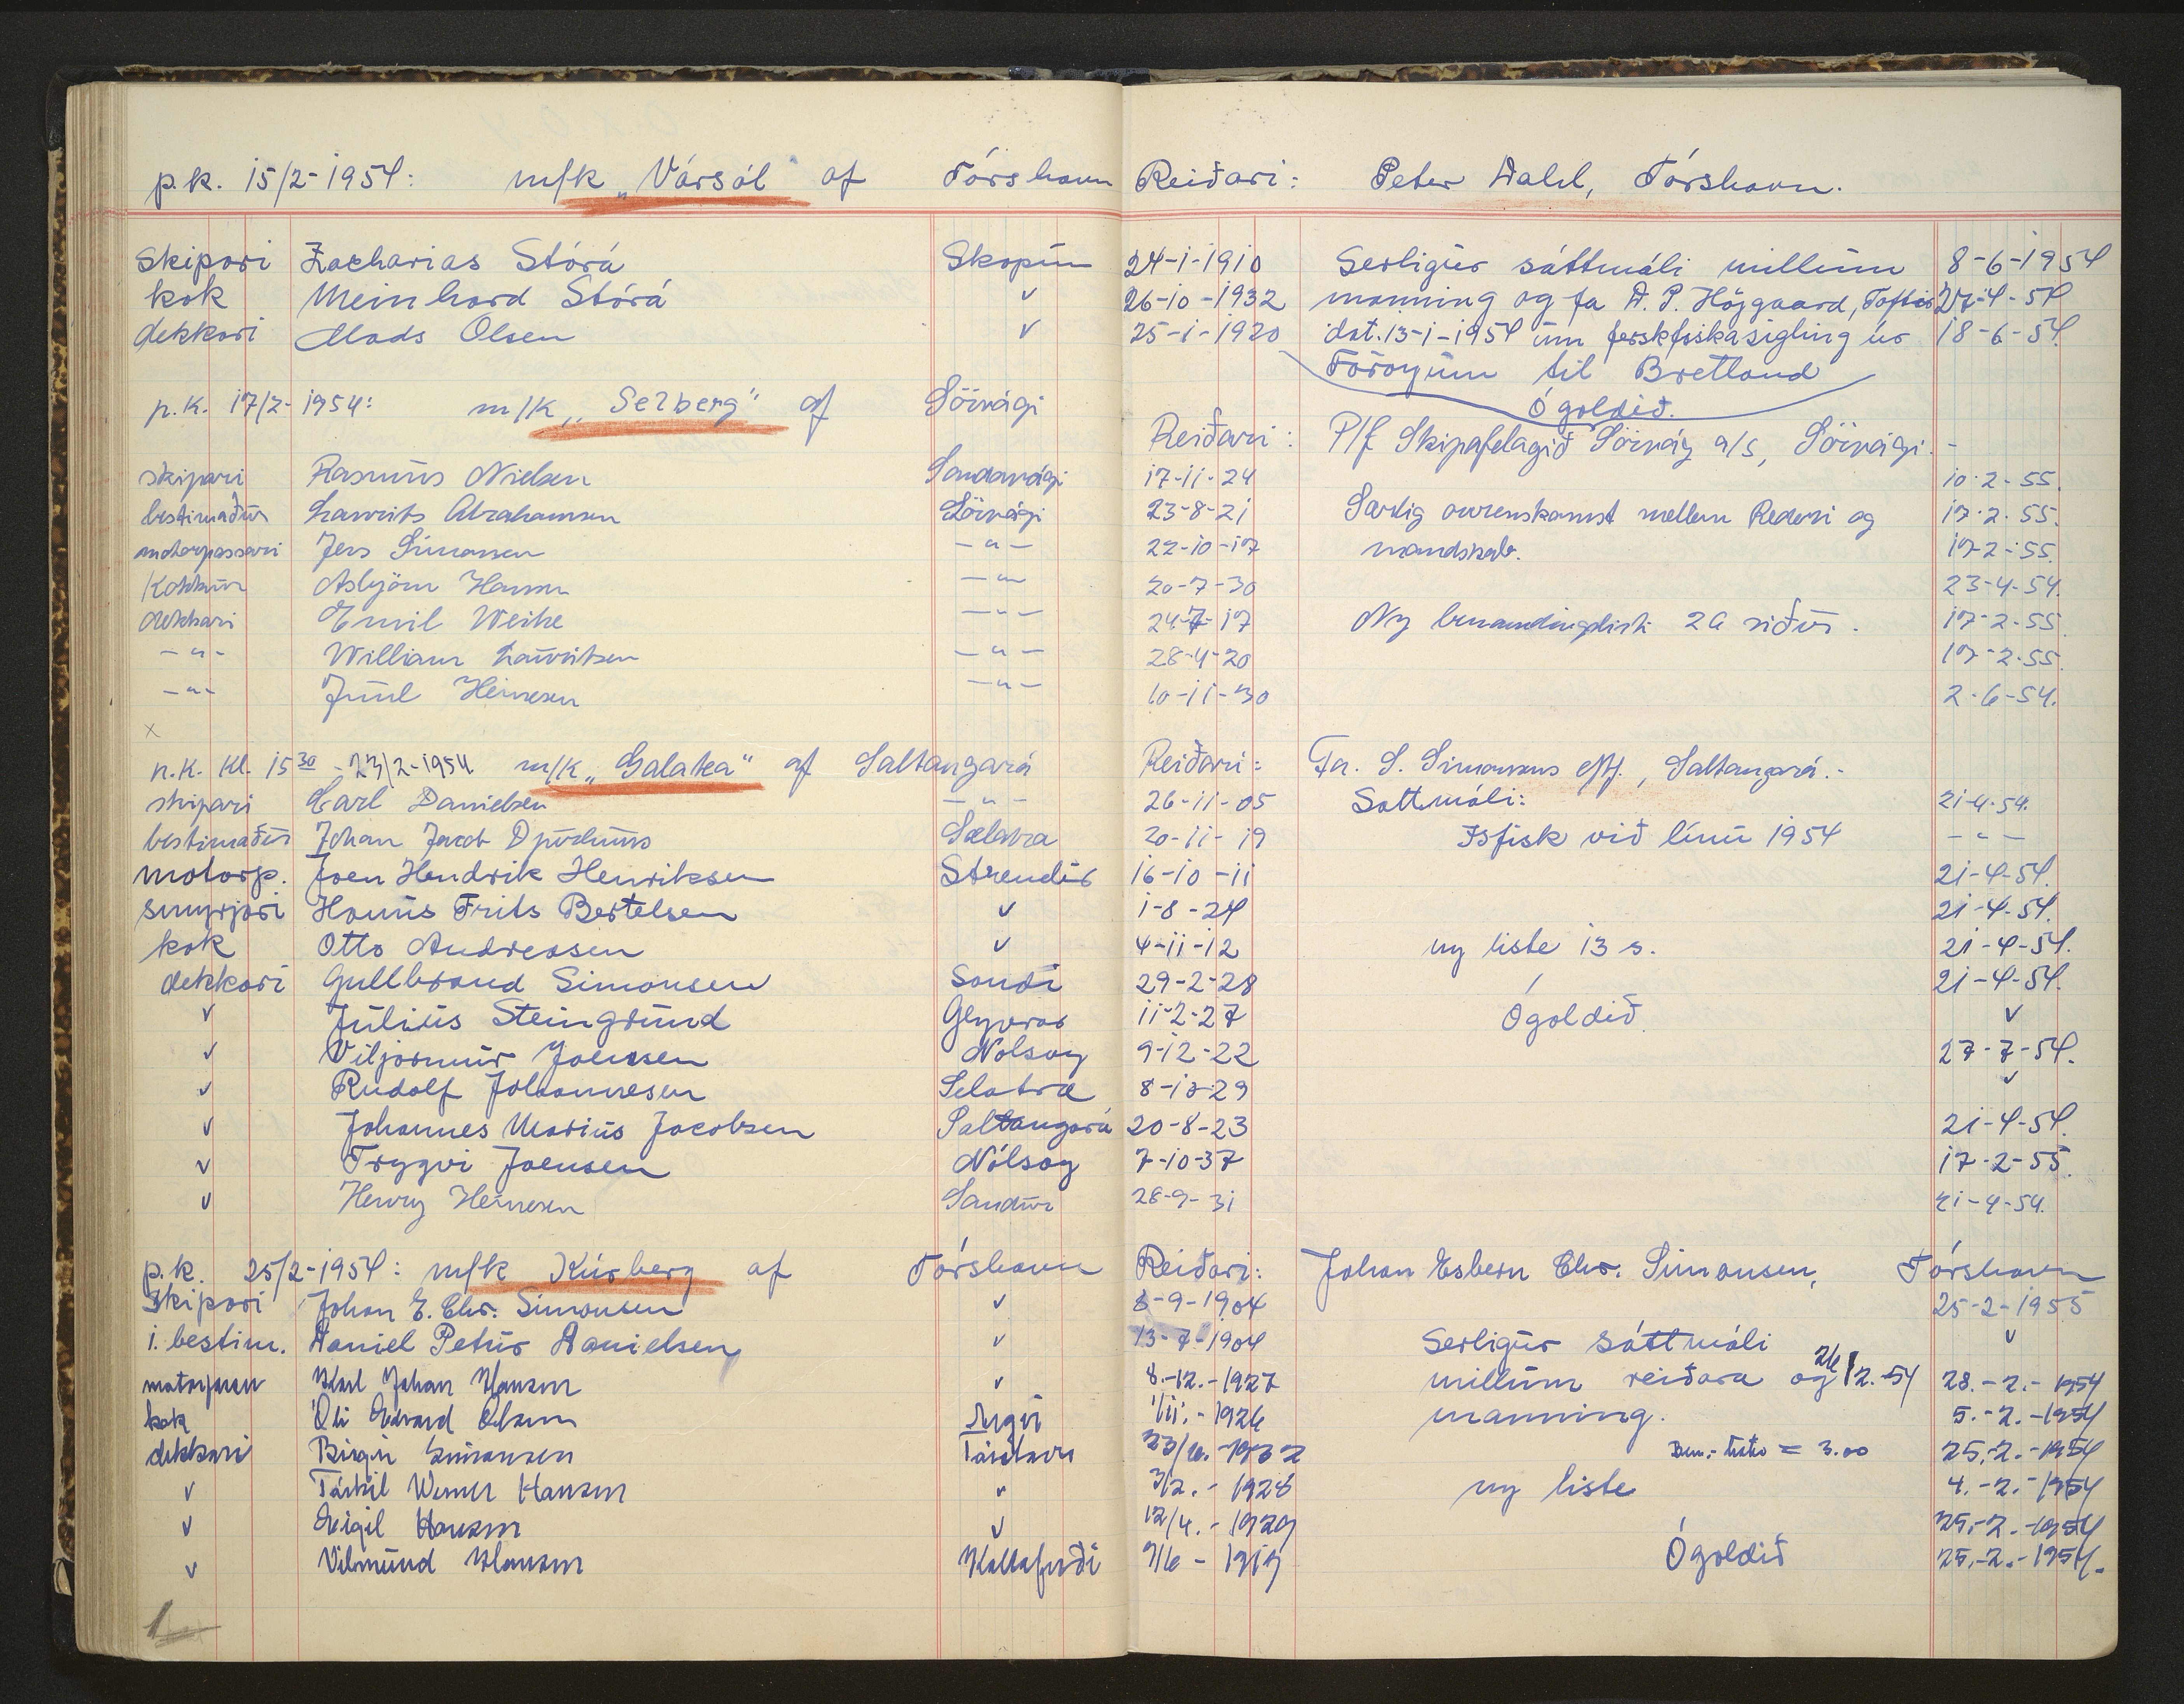 p.k. 15/2-1954: m/k „Vársól" af Tórshavn Reiðari: Peter Dahl, Tórshavn.
Skipari Zacharias Stórá Skopun 24-1-1910 Serligur sáttmáli millum 8-6-1954
kok Meinhard Stórá v 26-10-1932 manning og fa D. P. Højgaard, Toftir 27-4-54
dekkari Mads Olsen v 25-1-1920 dat. 13-1-1954 um ferskfiskasigling úr 18-6-54.
Föroyum til Bretland
Ógoldið.
p.k. 17/2-1954: m/k „Selberg" af Sörvági
Reiðari: P/f Skipafelagið Sörvág a/s, Sörvági.-
skipari Rasmus Nielsen Sandavági 17-11-24 10-2-55.
bestimaður Laurits Abrahamsen Sörvági 23-8-21 Særlig overenskomst mellem Rederi og 17-2-55.
motorpassari Jens Simonsen -"- 22-10-17 mandskab. 17-2-55.
Kokkur Asbjörn Hansen -"- 20-7-30 23-4-54.
dekkari Emil Weihe -"- 24-7-17 Ny bemandingsliste 2a siður. 17-2-55.
-"- William Lauritsen -"- 28-4-20 17-2-55.
-"- Juul Heinesen -"- 10-11-30 2-6-54.
x
p.k. kl. 15 30 - 23/2-1954 m/k „Galatea" af Saltangará Reiðari: Fa. S. Simonsens eftf., Saltangará.-
skipari Carl Danielsen -"- 26-11-05 Sattmáli: 21-4-54.
bestimaður Johan Jacob Djurhuus Selatra 20-11-19 Isfisk við línu 1954 -"-
motorp. Joen Hendrik Henriksen Strendur 16-10-11 21-4-54.
smyrjari Hanus Frits Bertelsen v 1-8-24 21-4-54.
kok Otto Andreasen v 4-11-12 ny liste 13 s. 21-4-54.
dekkari Gullbrand Simonsen Sandi 29-2-28 21-4-54.
v Júlíus Steingrund Glyvrar 11-2-27 Ógoldið. v
v Viljormur Joensen Nolsoy 9-12-22 27-7-54.
v Rudolf Johannesen Selatra 8-10-29 v
v Johannes Marius Jacobsen Saltangará 20-8-23 21-4-54.
v Tryggvi Joensen Nólsoy 7-10-37 17-2-55.
v Henry Heinesen Sandur 28-9-31 21-4-54.
p.k. 25/2-1954: m/k Kúrberg af Tórshavn Reiðari: Johan Esbern Chr. Simonsen, Tórshavn
Skipari Johan E. Chr. Simonsen v 8-9-1904 25-2-1955
1. bestim. Daniel Petur Danielsen v 13-7-1904 Serligur sáttmáli v
Karl Johan Hansen v 8.-12.-1927 millum reiðara og 26/2-54 28.-2.-1954
kok Óli Edvard Olsen Argir 1/11.-1926 manning. 5.-2.-1954
dekkari Birgir Simonsen Tórshavn 23/6.-1932 = 3.00 25.-2.-1954
v Tórkil Werner Hansen v 3/2.-1928 ny liste 4.-2.-1954
v Eigil Hansen v 12/4.-1929 25.-2.-1954
v Vilmund Hansen Kaldafirði 9/6-1919 Ógoldið 25.-2.-1954.
1